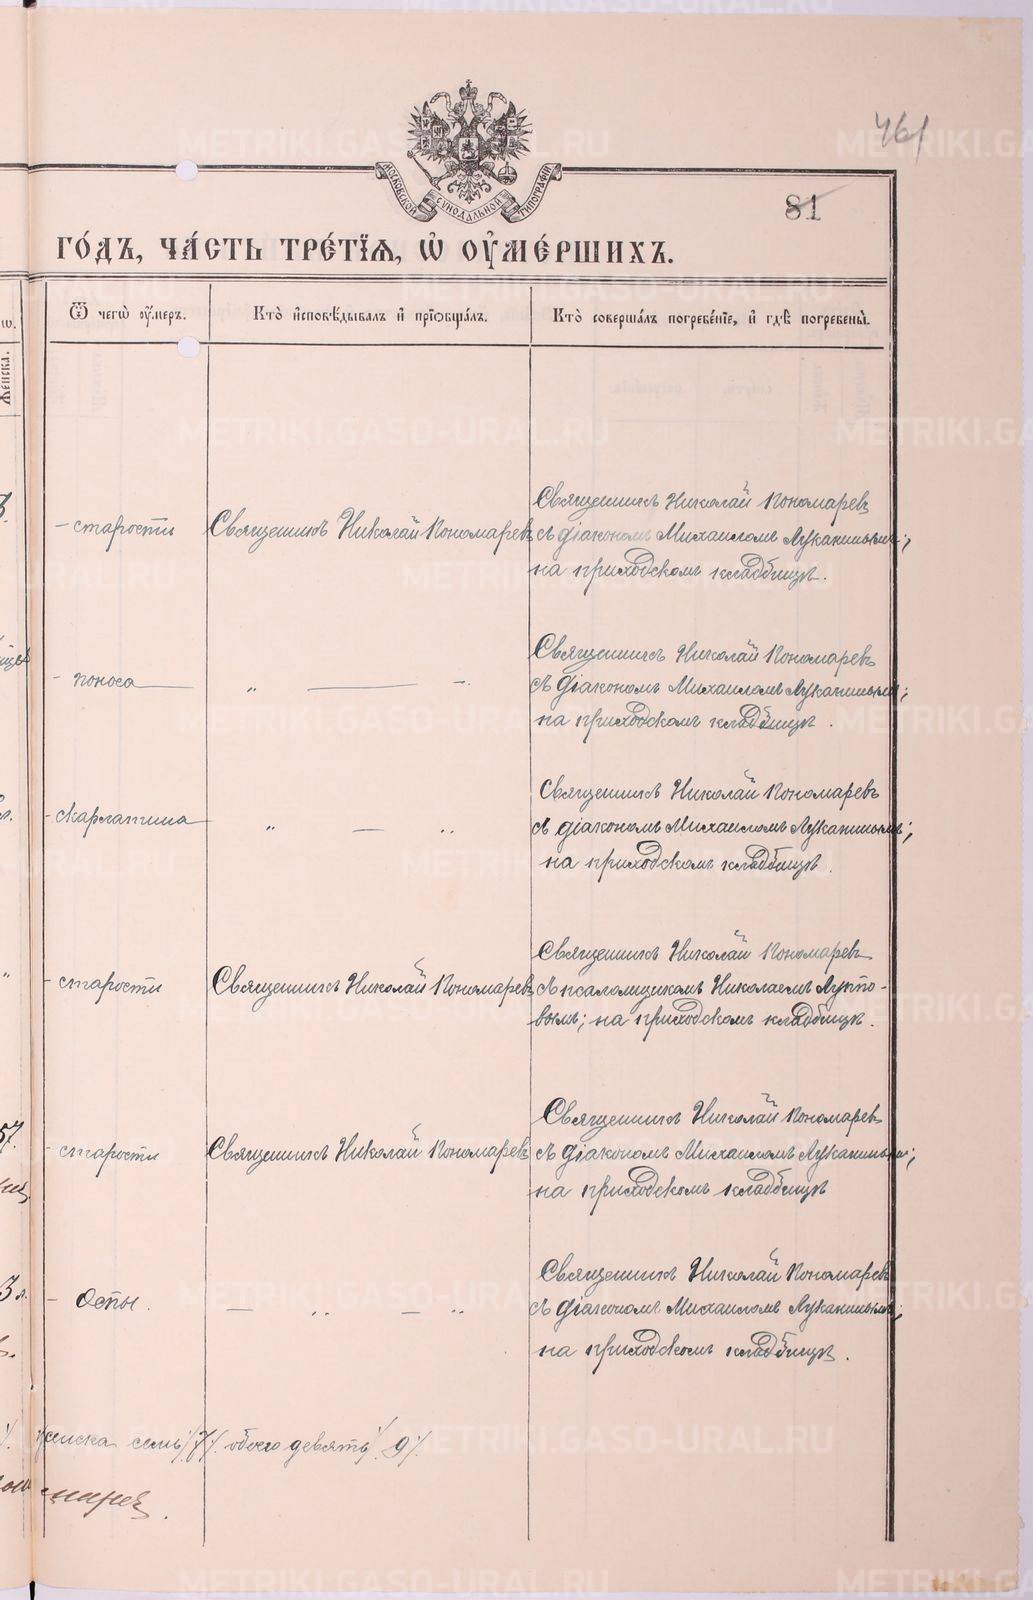 461
МОСКОВСКОЙ СѴНОДАЛЬНОЙ ТИПОГРАФІИ
81
ГО́ДЪ, ЧА́СТЬ ТРЕ́ТІѦ, Ѡ҆ ОУ҆МЕ́РШИХЪ.
Ѿ чегѡ̀ оу҆́меръ.
Кто̀ и҆сповѣ́дывалъ и҆ прїѡбща́лъ.
Кто̀ соверша́лъ погребе́нїе, и҆ гдѣ̀ погребены̀.
Же́нска.
- старости
Священникъ Николай Пономаревъ
Священникъ Николай Пономаревъ
съ діакономъ Михаиломъ Лукинымъ;
на приходскомъ кладбищѣ.
- поноса
" — ".
Священникъ Николай Пономаревъ
съ діакономъ Михаиломъ Луканинымъ;
на приходскомъ кладбищѣ.
- скарлатина
" — "
Священникъ Николай Пономаревъ
съ діакономъ Михаиломъ Луканинымъ;
на приходскомъ кладбищѣ.
- старости
Священникъ Николай Пономаревъ
Священникъ Николай Пономаревъ
съ псаломщикомъ Николаемъ Лупто-
вымъ; на приходскомъ кладбищѣ.
57.
- старости
Священникъ Николай Пономаревъ
Священникъ Николай Пономаревъ
съ діакономъ Михаиломъ Луканинымъ;
на приходскомъ кладбищѣ
3 л.
- Оспы.
— " — "
Священникъ Николай Пономаревъ
съ діакономъ Михаиломъ Луканинымъ;
на приходскомъ кладбищѣ.
женска семь /7/. обоего девять /9/.
METRIKI.GASO-URAL.RU